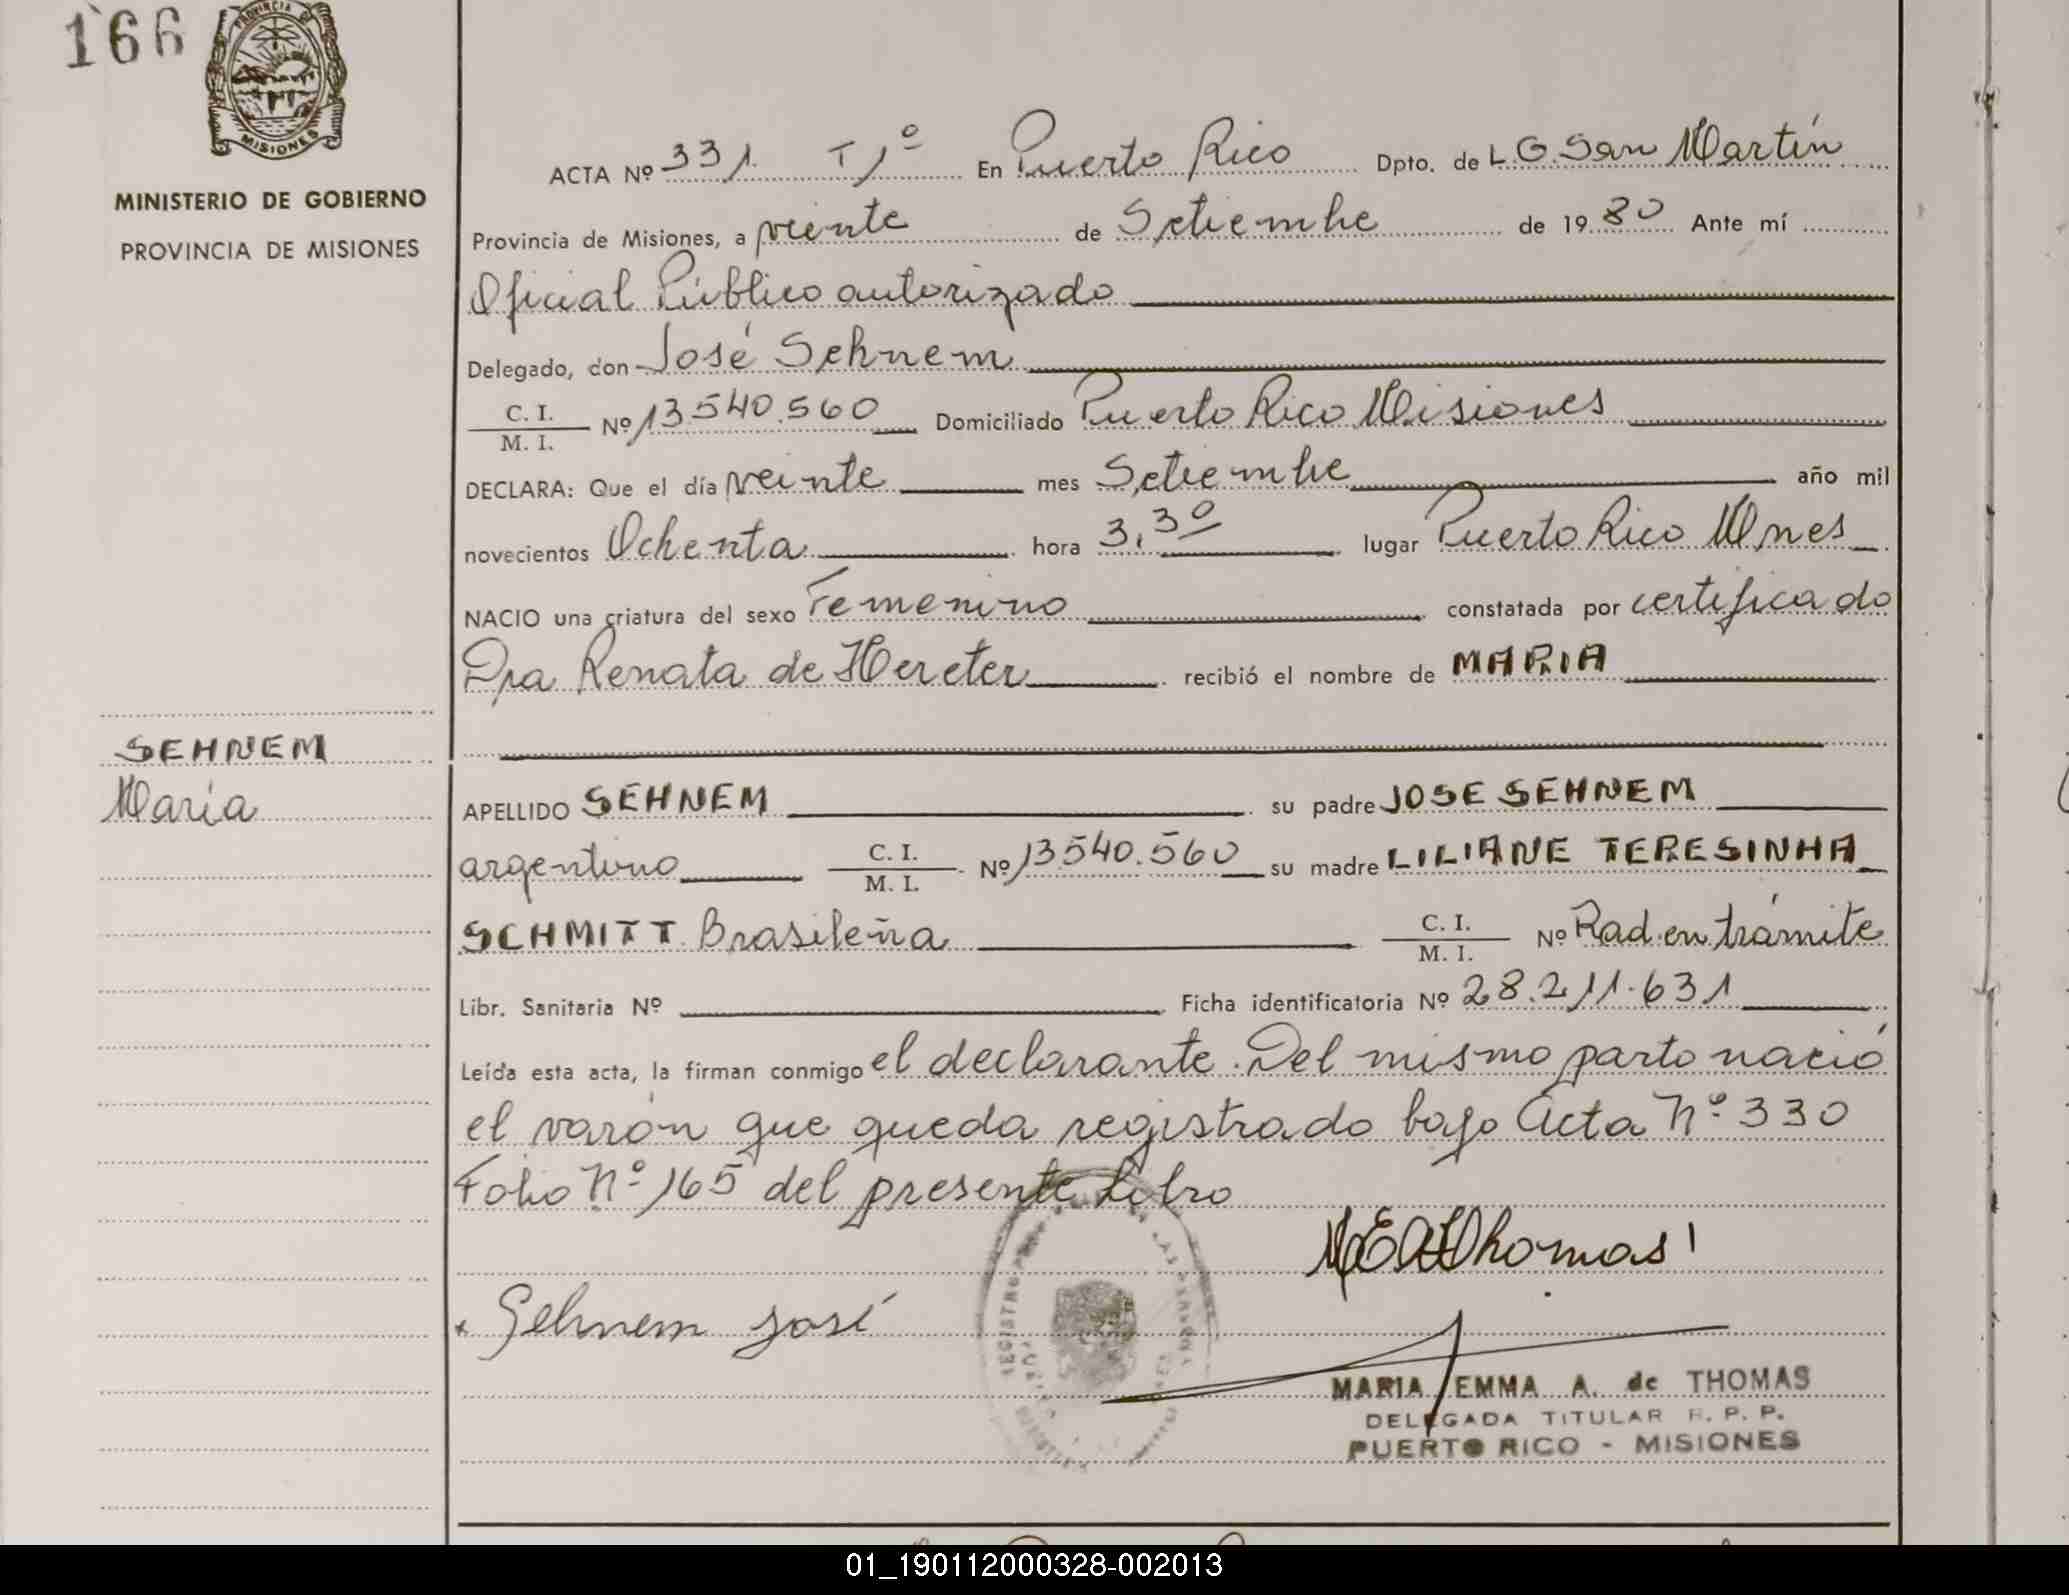 166
PROVINCIA DE
MISIONES
MINISTERIO DE GOBIERNO
PROVINCIA DE MISIONES
SEHNEM
María
ACTA Nº 331 T 1º En Puerto Rico Dpto. de L. G. San Martín
Provincia de Misiones, a veinte de Setiembre de 1980 Ante mí
Oficial Público autorizado
Delegado, don José Sehnem
C. I.
M. I. Nº 13.540.560 Domiciliado Puerto Rico Misiones
DECLARA: Que el día veinte mes Setiembre año mil
novecientos Ochenta hora 3,30 lugar Puerto Rico Mnes
NACIO una criatura del sexo Femenino constatada por certificado
Dra Renata de Hereter recibió el nombre de MARIA
APELLIDO SEHNEM su padre JOSE SEHNEM
argentino C. I.
M. I. Nº 13.540.560 su madre LILIANE TERESINHA
SCHMITT Brasileña C. I.
M. I. Nº Rad. en trámite
Libr. Sanitaria Nº Ficha identificatoria Nº 28.211.631
Leída esta acta, la firman conmigo el declarante. Del mismo parto nació
el varón que queda registrado bajo Acta Nº 330
Folio Nº 165 del presente Libro
Thomas
Sehnem José
MARIA EMMA A. de THOMAS
DELEGADA TITULAR R. P. P.
PUERTO RICO - MISIONES
01_190112000328-002013